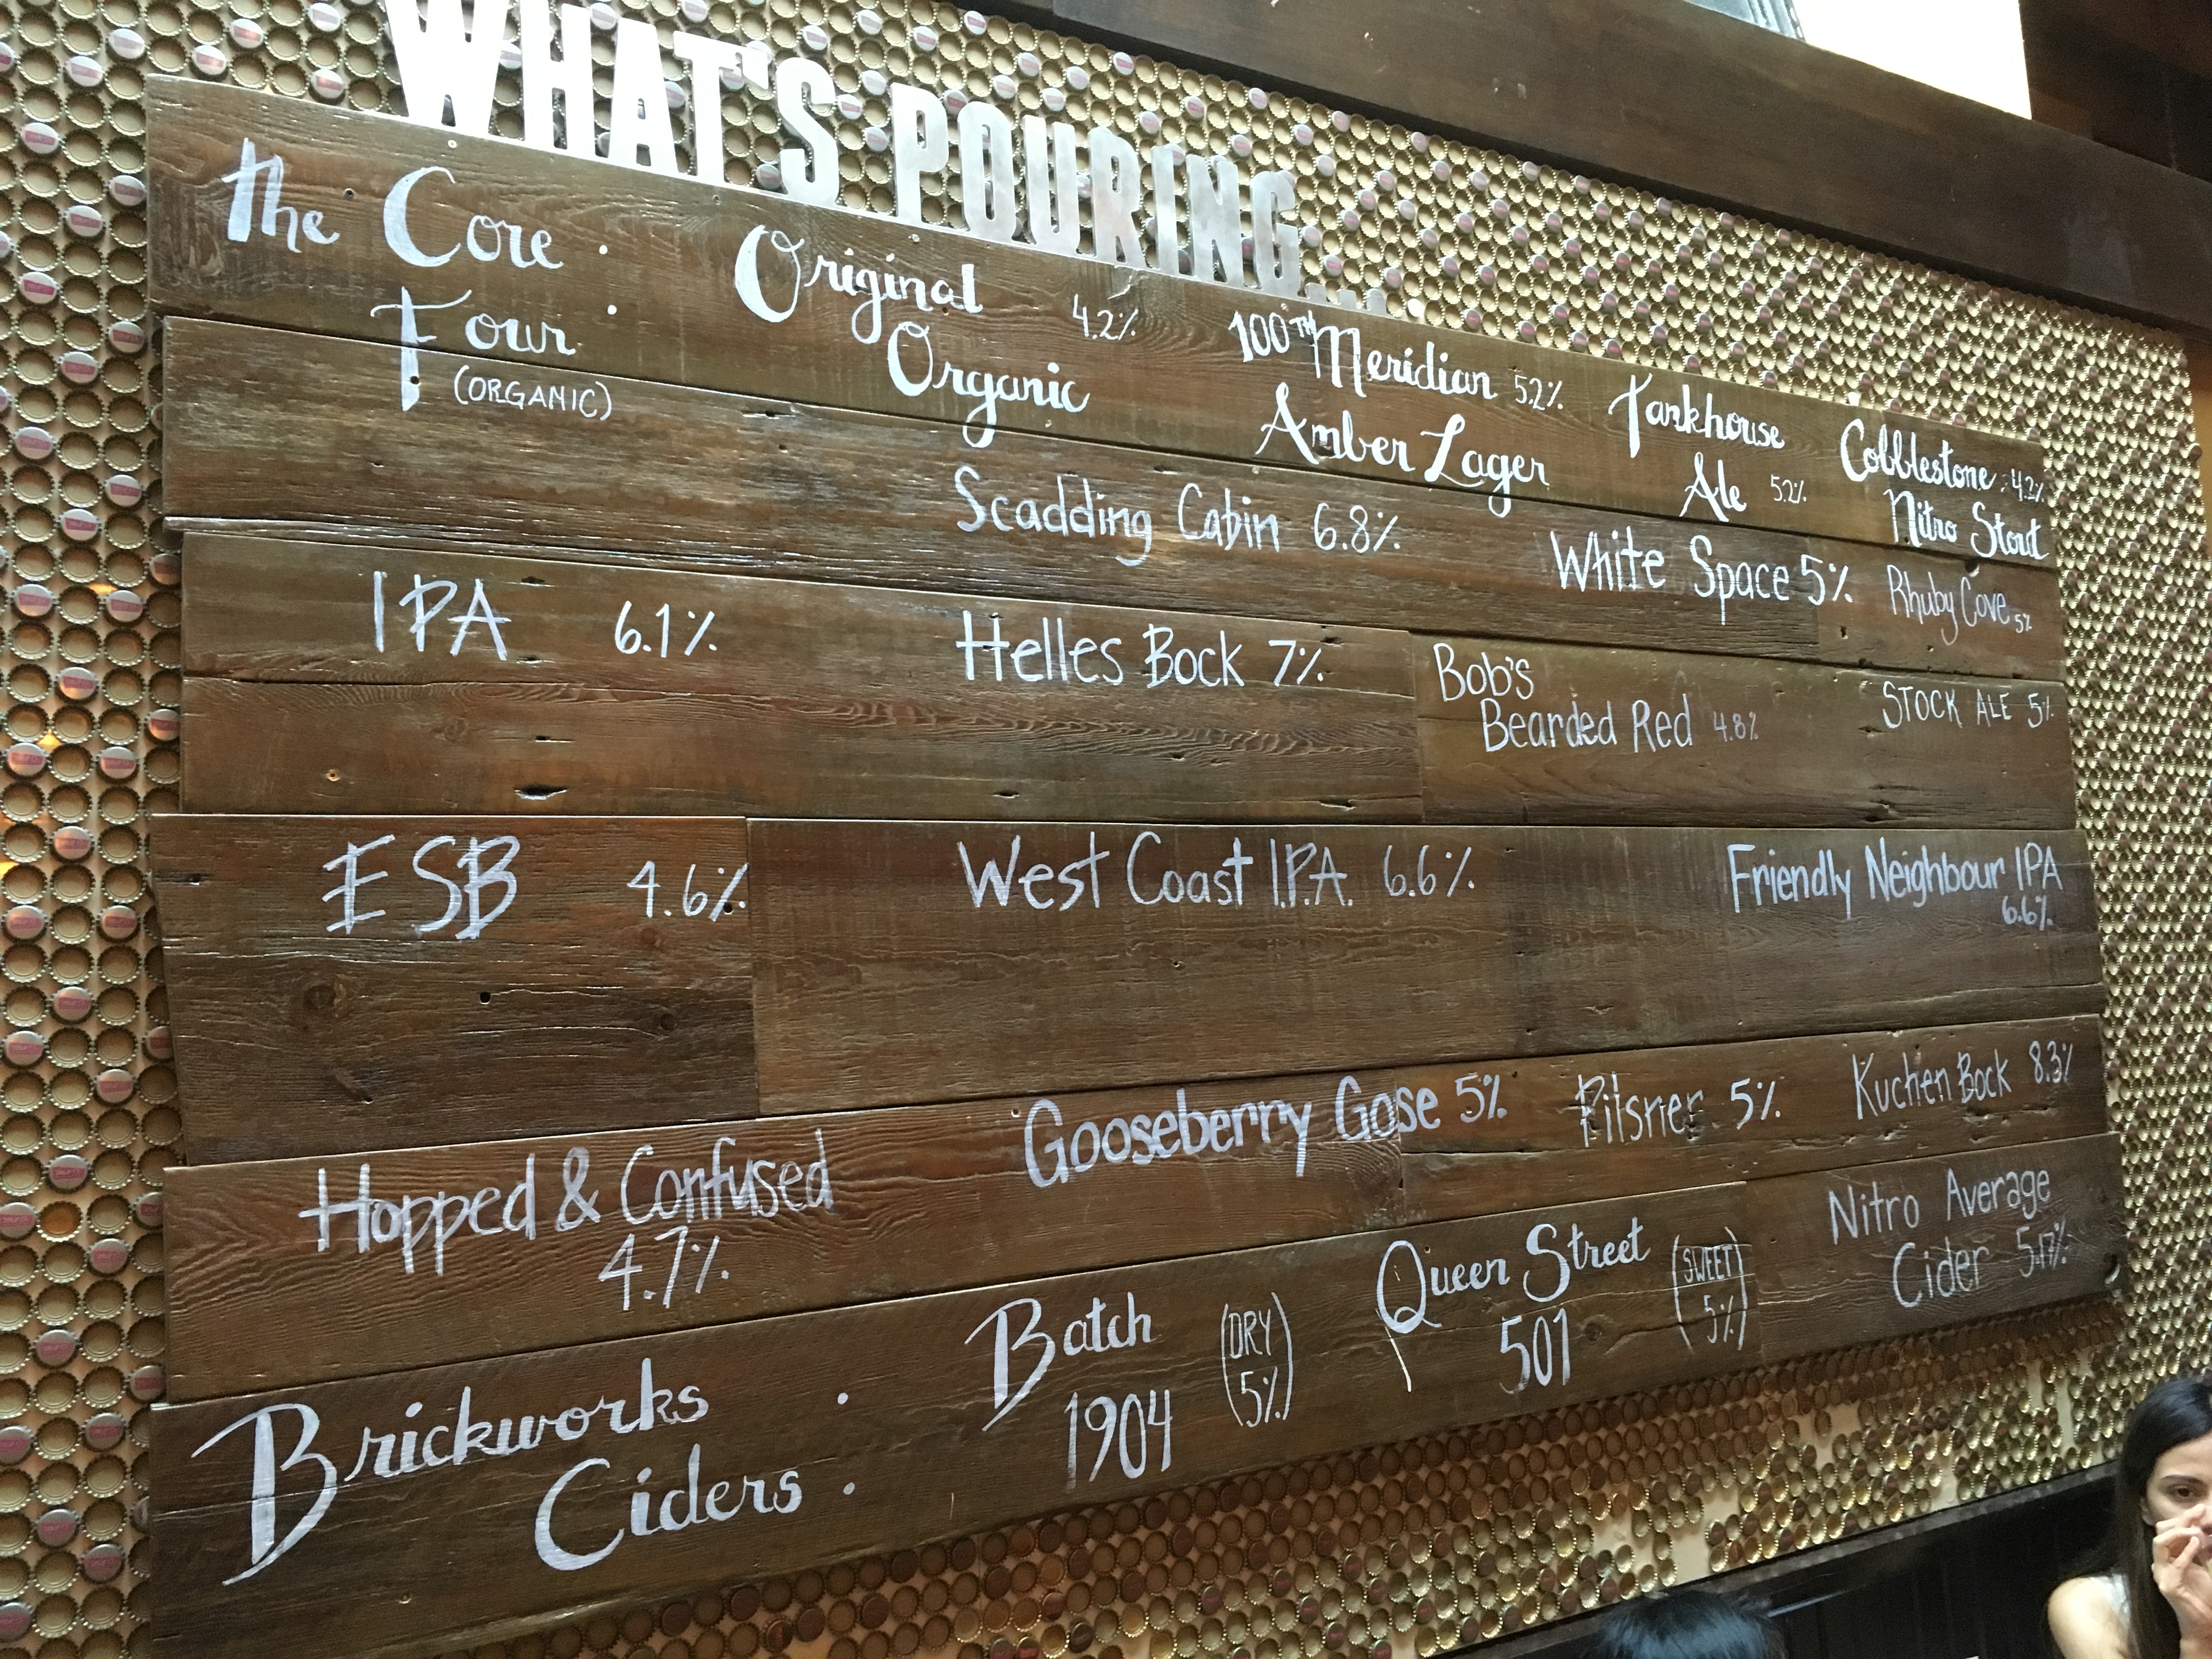 WHAT'S POURING...
The Core :
Four
(ORGANIC)
Original 4.2%
Organic
100TH Meridian 5.2%
Amber Lager
Tankhouse
Ale 5.2%
Cobblestone : 4.2%
Nitro Stout
Scadding Cabin 6.8%
White Space 5%
Rhuby Cove 5%
IPA 6.1%
Helles Bock 7%
Bob's
Bearded Red 4.8%
STOCK ALE 5%
ESB 4.6%
West Coast I.P.A. 6.6%
Friendly Neighbour IPA
6.6%
Hopped & Confused
4.7%
Gooseberry Gose 5%
Pilsner 5%
Kuchen Bock 8.3%
Brickworks
Ciders :
Batch
1904
(DRY
5%)
Queen Street
501
(SWEET
5%)
Nitro Average
Cider